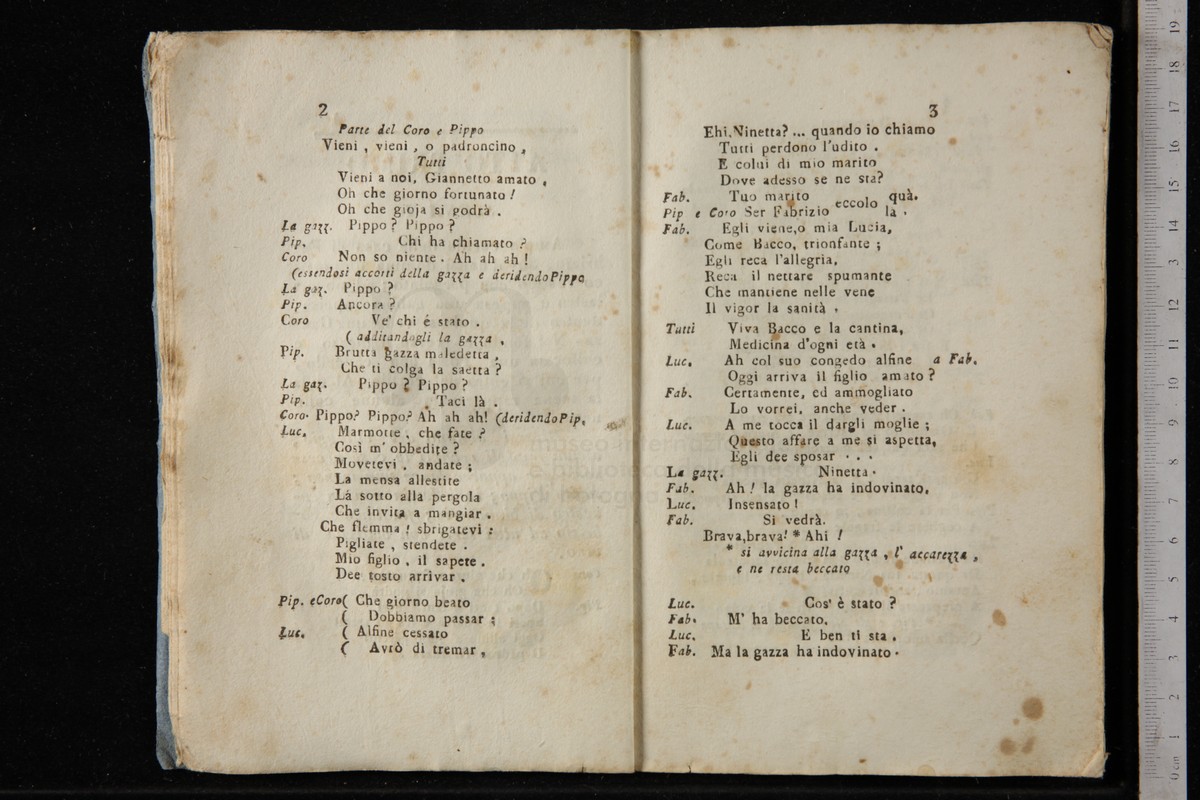 2
Parte del Coro e Pippo
Vieni , vieni , o padroncino ,
Tutti
Vieni a noi, Giannetto amato ,
Oh che giorno fortunato !
Oh che gioja si godrà .
La gazz. Pippo ? Pippo ?
Pip. Chi ha chiamato ?
Coro Non so niente . Ah ah ah !
(essendosi accorti della gazza e deridendo Pippo
La gaz. Pippo ?
Pip. Ancora ?
Coro Ve' chi é stato .
( additandogli la gazza ,
Pip. Brutta gazza maledetta ,
Che ti colga la saetta ?
La gaz. Pippo ? Pippo ?
Pip. Taci là .
Coro. Pippo? Pippo? Ah ah ah! (deridendo Pip,
Luc. Marmotte , che fate ?
Così m' obbedite ?
Movetevi . andate ;
La mensa allestite
Là sotto alla pergola
Che invita a mangiar .
Che flemma ! sbrigatevi :
Pigliate , stendete .
Mio figlio , il sapete .
Dee tosto arrivar .
Pip. e Coro ( Che giorno beato
( Dobbiamo passar ;
Luc. ( Alfine cessato
( Avrò di tremar ,
3
Ehi, Ninetta? ... quando io chiamo
Tutti perdono l'udito .
E colui di mio marito
Dove adesso se ne sta?
Fab. Tuo marito eccolo quà.
Pip e Coro Ser Fabrizio là .
Fab. Egli viene,o mia Lucia,
Come Bacco, trionfante ;
Egli reca l'allegria,
Reca il nettare spumante
Che mantiene nelle vene
Il vigor la sanità ,
Tutti Viva Bacco e la cantina,
Medicina d'ogni età .
Luc. Ah col suo congedo alfine a Fab.
Oggi arriva il figlio amato ?
Fab. Certamente, ed ammogliato
Lo vorrei, anche veder .
Luc. A me tocca il dargli moglie ;
Questo affare a me si aspetta,
Egli dee sposar . . .
La gazz. Ninetta .
Fab. Ah ! la gazza ha indovinato,
Luc. Insensato !
Fab. Si vedrà.
Brava,brava! * Ahi !
* si avvicina alla gazza , l' accarezza ,
e ne resta beccato
Luc. Cos' è stato ?
Fab. M' ha beccato,
Luc. E ben ti sta .
Fab. Ma la gazza ha indovinato .
0 cm 1 2 3 4 5 6 7 8 9 10 11 12 13 14 15 16 17 18 19